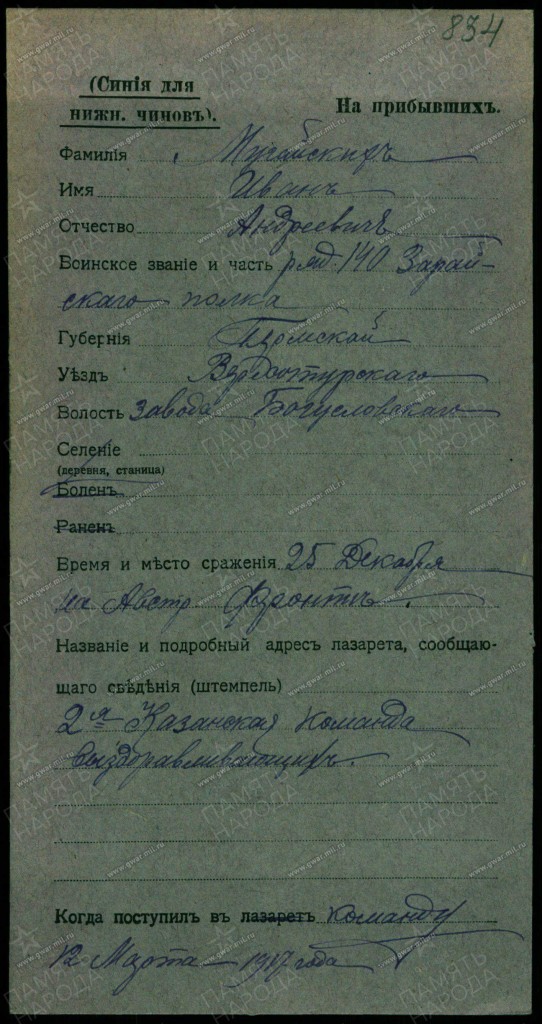 834
(Синія для
нижн. чиновъ).
На прибывшихъ.
Фамилія
Имя Иванъ
Отчество Андреевичъ
Воинское званіе и часть ряд. 140 Зарай-
скаго полка
Губернія Пермской
Уѣздъ Верхотурскаго
Волость завода Богусловскаго
Селеніе
(деревня, станица)
Боленъ
Раненъ
Время и мѣсто сраженія 25 Декабря
на Австр. Фронтѣ.
Названіе и подробный адресъ лазарета, сообщаю-
щаго свѣдѣнія (штемпель)
2я Казанская Команда
Выздравливающихъ.
Когда поступилъ въ лазаретъ команду
12 Марта 1917 года